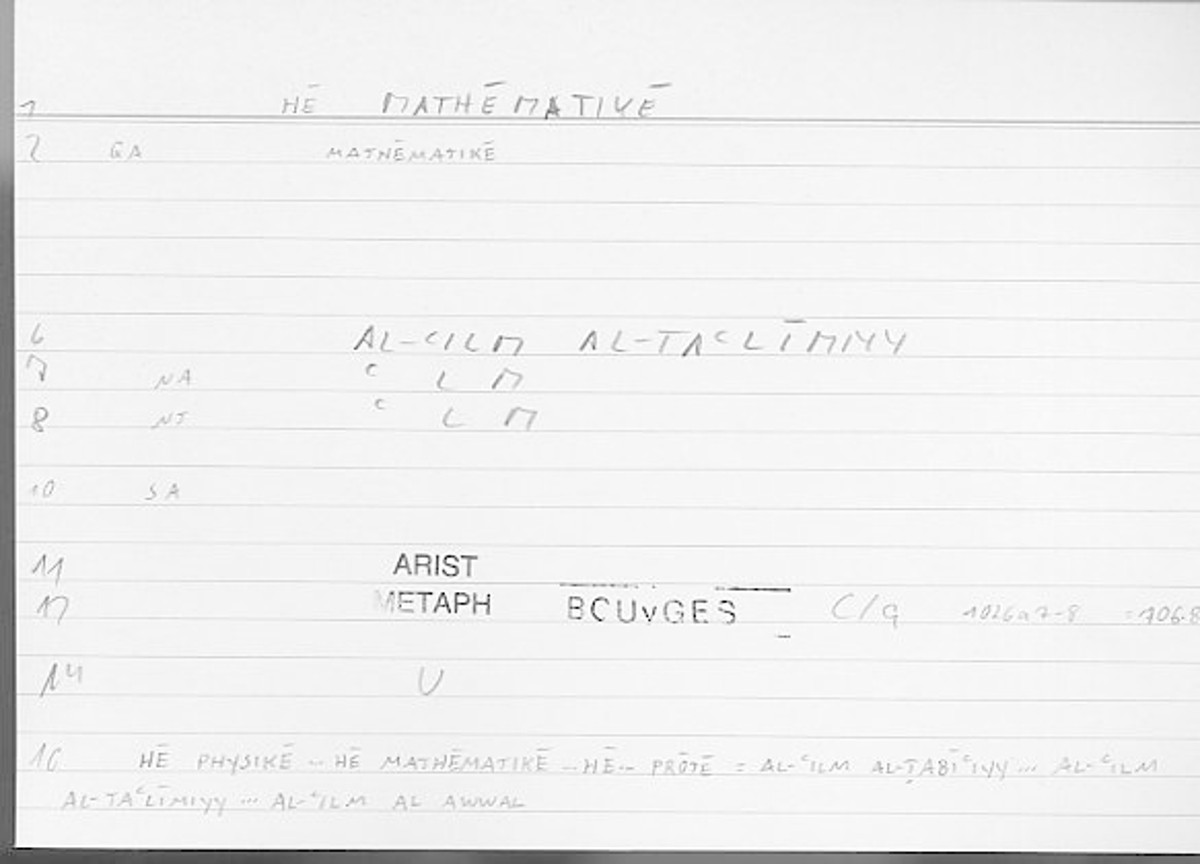 1 HĒ MATHĒMATIKĒ
2 GA MATHĒMATIKĒ
6 AL-ʿILM AL-TAʿLĪMIYY
7 NA ʿ L M
8 NT ʿ L M
10 SA
11 ARIST
12 METAPH BOUYGES C/9 1026a7-8 =706.8
14 U
16 HĒ PHYSIKĒ ... HĒ MATHĒMATIKĒ ... HĒ ... PRŌTĒ = AL-ʿILM AL-ṬABĪʿIYY ... AL-ʿILM
AL-TAʿLĪMIYY ... AL-ʿILM AL AWWAL